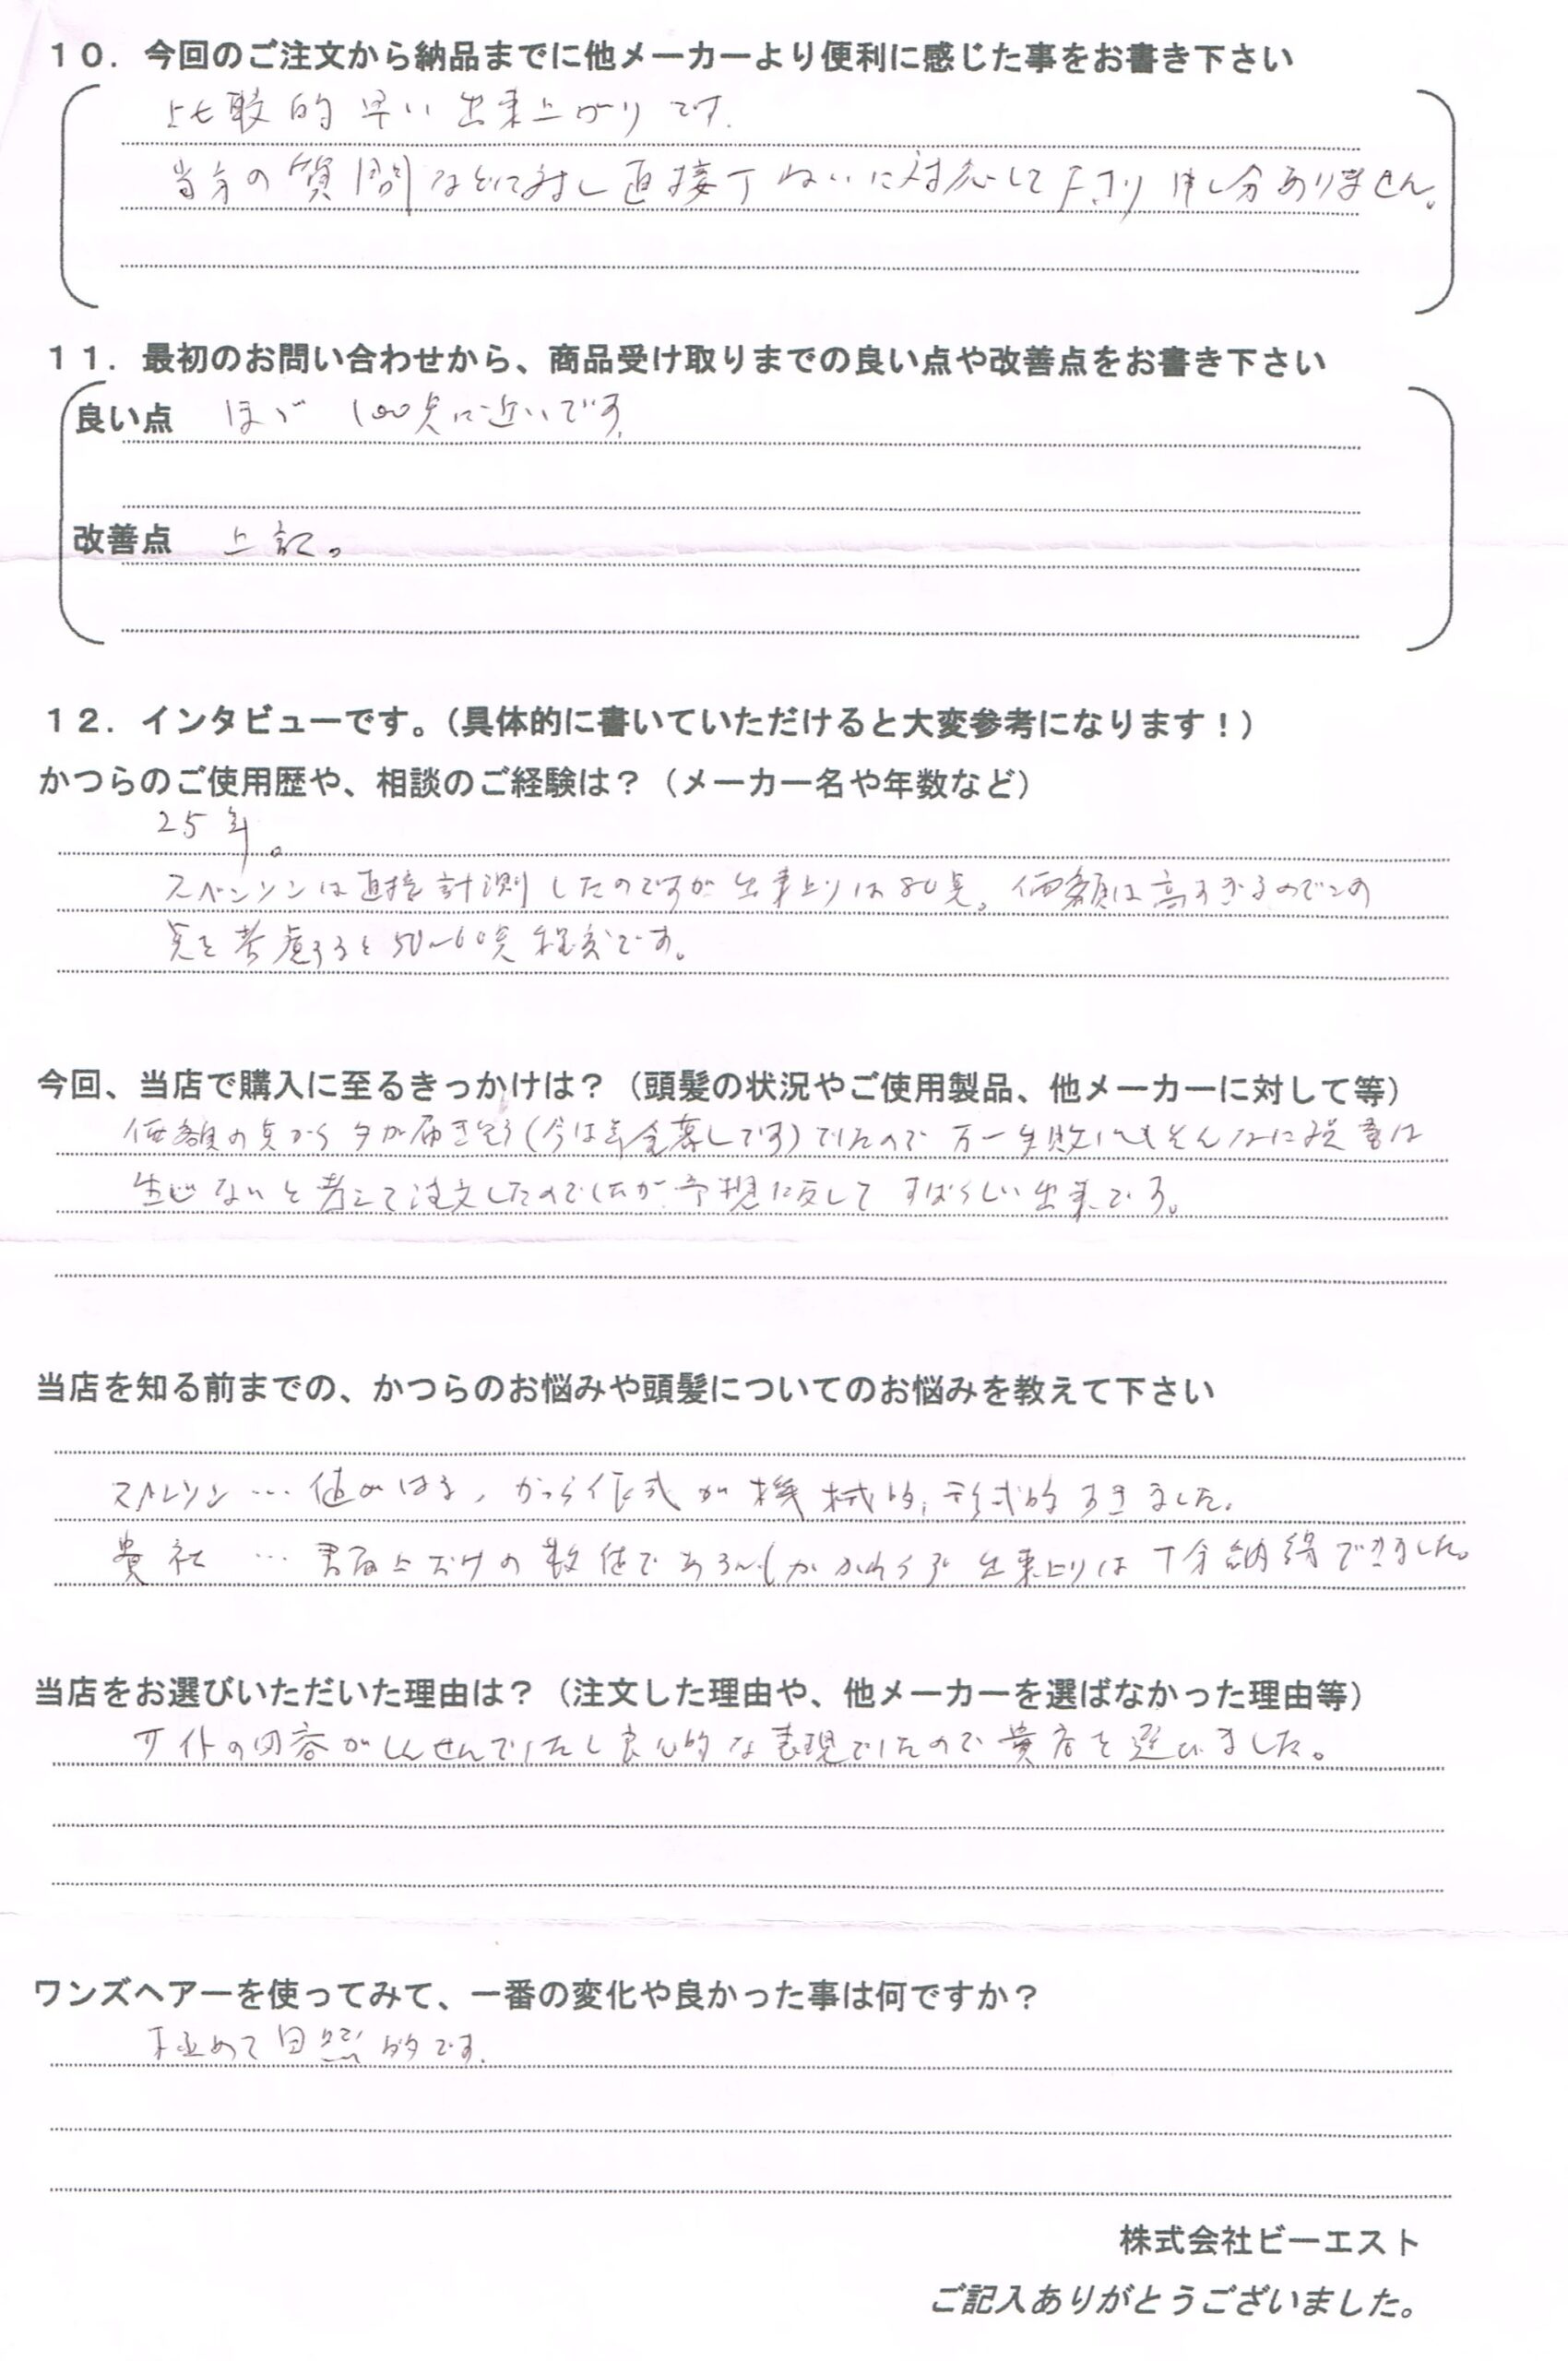 10．今回のご注文から納品までに他メーカーより便利に感じた事をお書き下さい
比較的早い出来上がりです.
当方の質問などに対し直接丁ねいに対応して下さり申し分ありません。
11．最初のお問い合わせから、商品受け取りまでの良い点や改善点をお書き下さい
良い点 ほゞ100点に近いです.
改善点 上記。
12．インタビューです。（具体的に書いていただけると大変参考になります！）
かつらのご使用歴や、相談のご経験は？（メーカー名や年数など）
25年。
スベンソンは直接計測したのですが出来上りは80点。価額は高すぎるのでこの
点を考慮すると50～60点程度です。
今回、当店で購入に至るきっかけは？（頭髪の状況やご使用製品、他メーカーに対して等）
価額の点から手が届きそう(今は年金暮しです)でしたので万一失敗してもそんなに損害は
生じないと考えて注文したのでしたが予想に反してすばらしい出来です。
当店を知る前までの、かつらのお悩みや頭髪についてのお悩みを教えて下さい
スベンソン…値がはる、かつら作成が機械的,形式的すぎました.
貴社…書面上だけの数値であるにもかかわらず出来上りは十分納得できました。
当店をお選びいただいた理由は？（注文した理由や、他メーカーを選ばなかった理由等）
サイトの内容がしんせんでしたし良心的な表現でしたので貴店を選びました。
ワンズヘアーを使ってみて、一番の変化や良かった事は何ですか？
極めて自然的です.
株式会社ビーエスト
ご記入ありがとうございました。